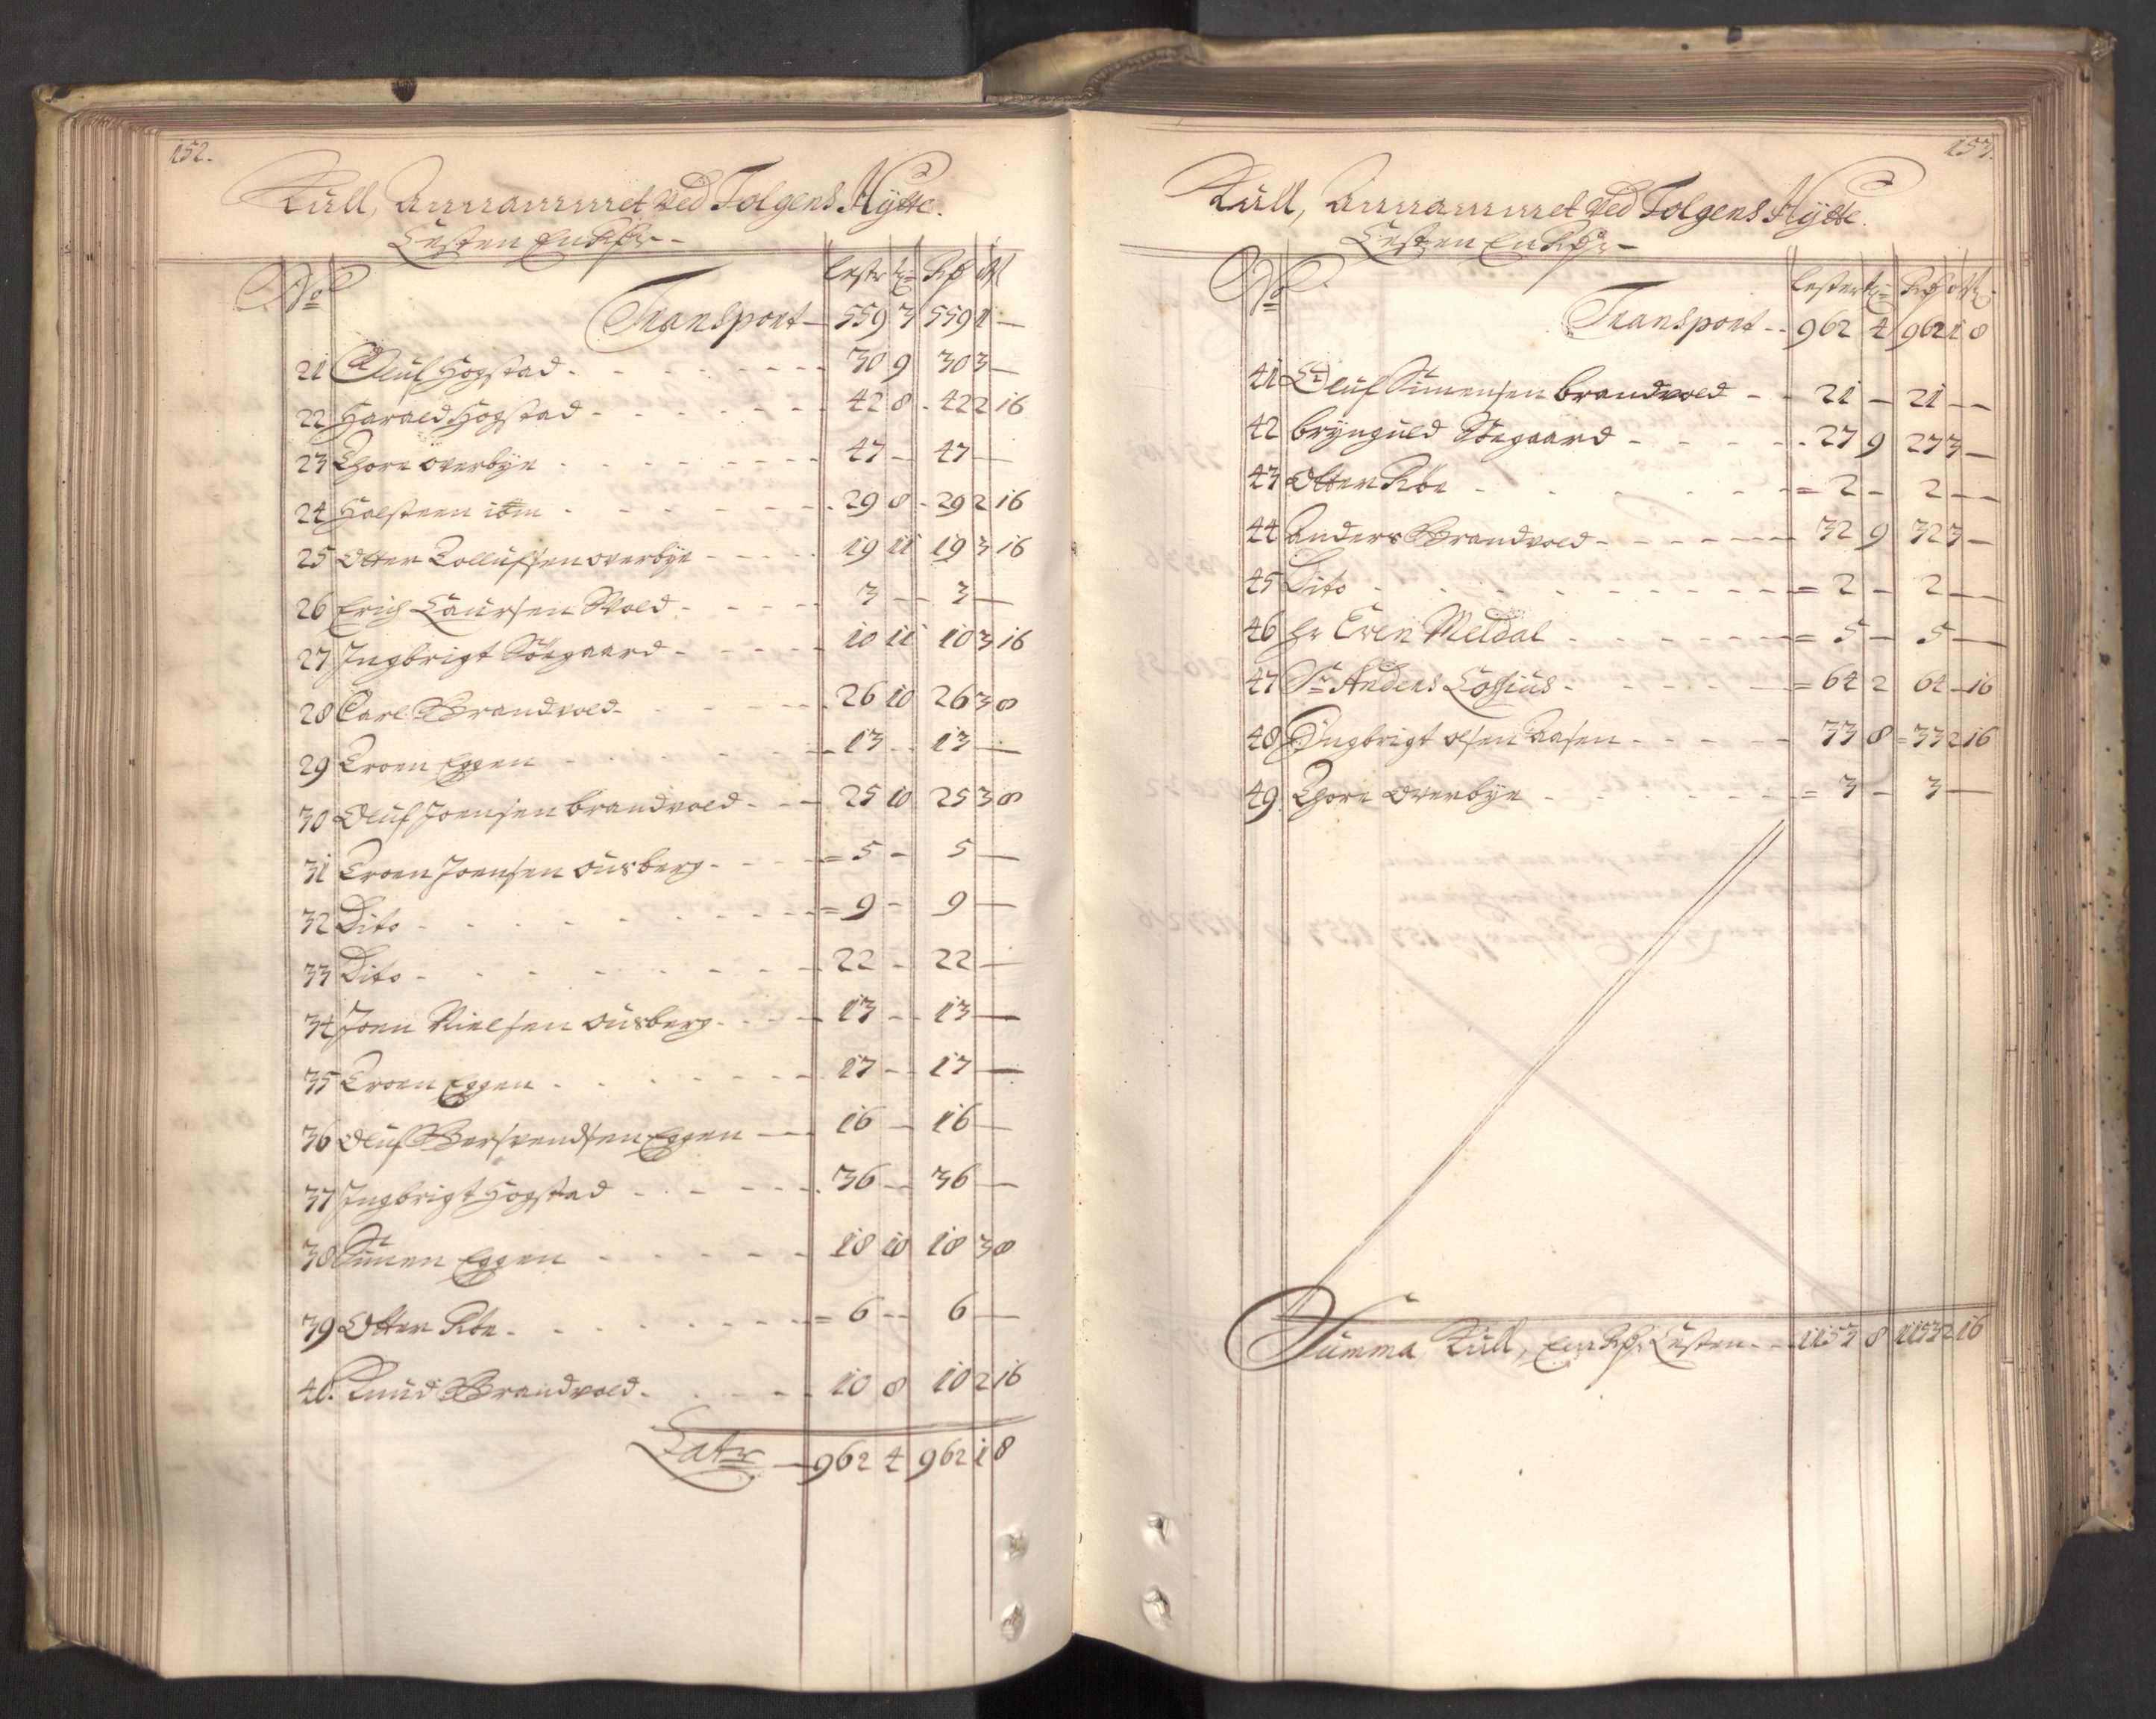 152.
Kull, Annammet Ved Tolgens Hytte.
Lesten En Rdr -
No Lester tr Rdr ort s
Transport — 559 3 559 1 —
21 Oluf Hogstad - 30 9 30 3 —
22 Harald Hogstad - 42 8 42 2 16
23 Thore overbye - 47 — 47 —
24 Halsteen item - 29 8 29 2 16
25 Otter Tollufsen overbye - 19 11 19 3 16
26 Erich Laursen Wold - 3 — 3 —
27 Ingbrigt Röegaard - 10 11 10 3 16
28 Carl Brandvold - 26 10 26 3 8
29 Troen Eggen - 13 — 13 —
30 Oluf Joensen brandvold - 25 10 25 3 8
31 Troen Joensen ousberg - = 5 - 5 —
32 Dito - = 9 - 9 —
33 Dito - 22 - 22 —
34 Joen Nielsen ousberg - 13 - 13 —
35 Troen Eggen - 17 - 17 —
36 Oluf Bersvendsen Eggen — 16 — 16 —
37 Ingbrigt Hogstad - 36 — 36 —
38 Simen Eggen - 18 10 18 3 8
39 Otter Röe - = 6 - 6 —
40. Knud Brandvold - 10 8 10 2 16
Latr — 962 4 962 1 8
153.
Kull, Annammet Ved Tolgens Hytte.
Lesten En Rdr -
No Lester tr Rdr ort s
Transport - - 962 4 962 1 8
41 Oluf Simensen brandvold - 21 — 21 —
42 brynguld Röegaard - 27 9 27 3 —
43 Otter Röe - = 2 - 2 —
44 Anders Brandvold - 32 9 32 3 —
45 Dito - = 2 - 2 —
46 Hr Even Meldal - = 5 - 5 —
47 Sr Anders Lossius - = 64 2 64 — 16
48 Ingbrigt olsen Aasen - 33 8 = 33 2 16
49. Thore Overbye - = 3 - 3 —
Summa Kull, Em Rdr Lesten - - 1153 8 1153 2 16